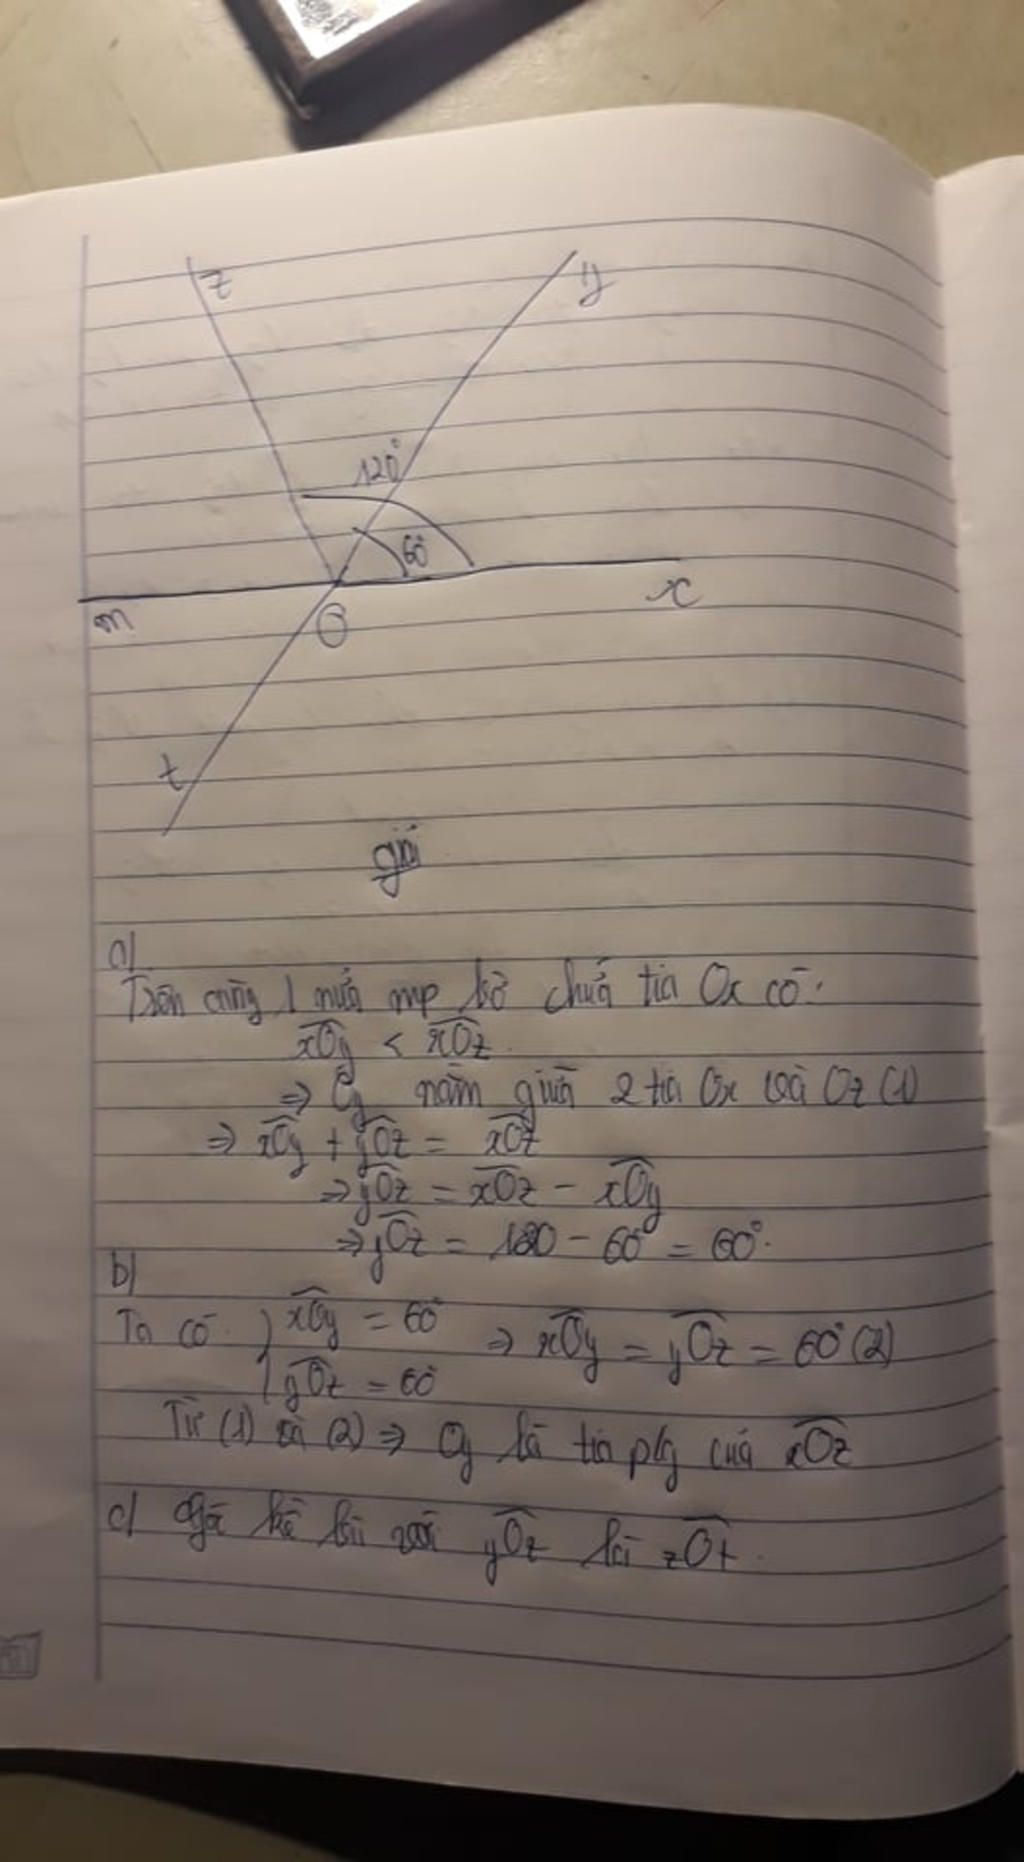 z
y
120°
60°
x
m
O
t
giải
a)
Trên cùng 1 nửa mp bờ chứa tia Ox có:
xOy < xOz.
⇒ Oy nằm giữa 2 tia Ox và Oz (1)
⇒ xOy + yOz = xOz
⇒ yOz = xOz − xOy
⇒ yOz = 120 − 60° = 60°.
b)
Ta có: { xOy = 60° ⇒ xOy = yOz = 60° (2)
yOz = 60°
Từ (1) và (2) ⇒ Oy là tia plg của xOz
c) kề bù với yOz là zOt.